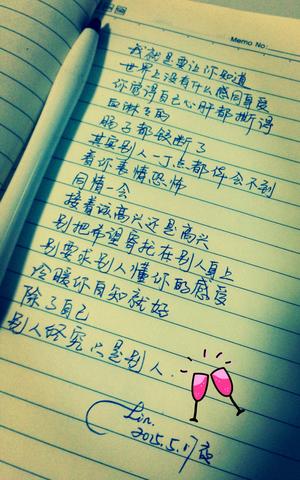 Memo No:
我就是要让你知道
世界上没有什么感同身受
你觉得自己心肝都撕得
血淋淋的
肠子都绞断了
其实别人一丁点都体会不到
看你表情恐怖
同情一会
接着该高兴还是高兴
别把希望寄托在别人身上
别要求别人懂你的感受
冷暖你自知就好
除了自己
别人终究只是别人.
Lin.
2015.5.17夜